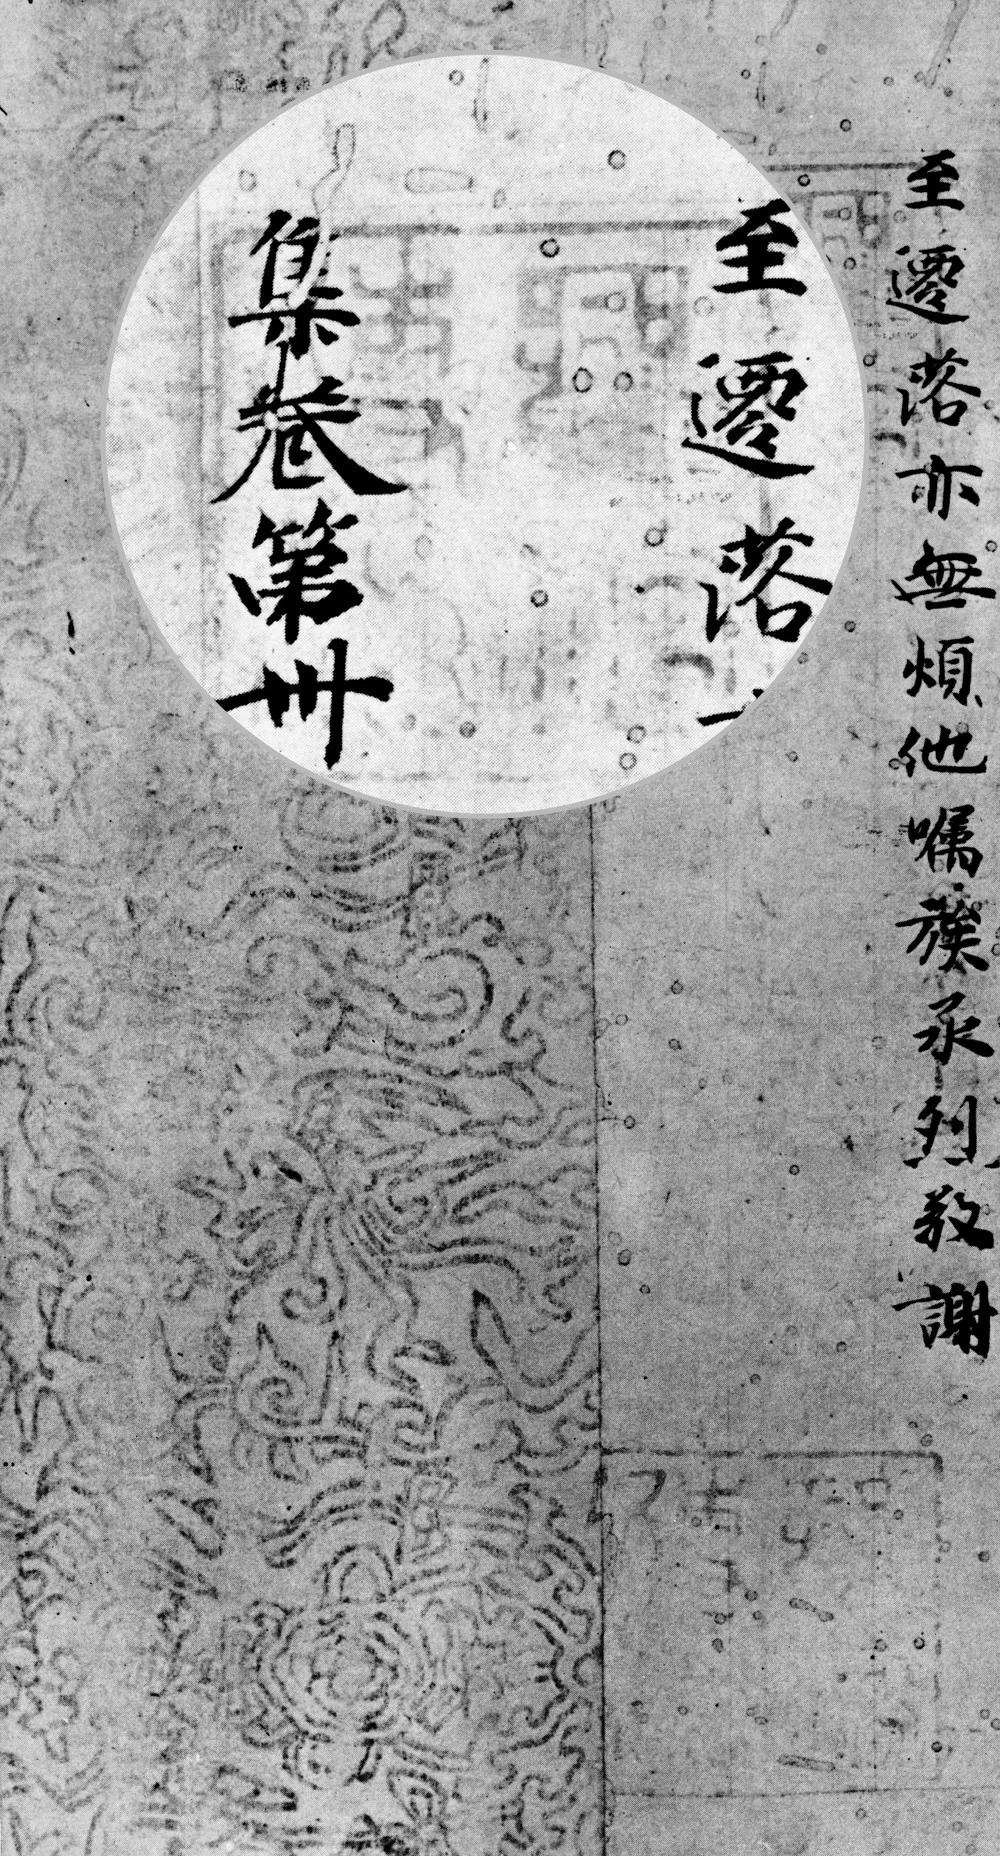 至遷落亦無煩他囑蔟承列敬謝
至遷落
集卷第卌